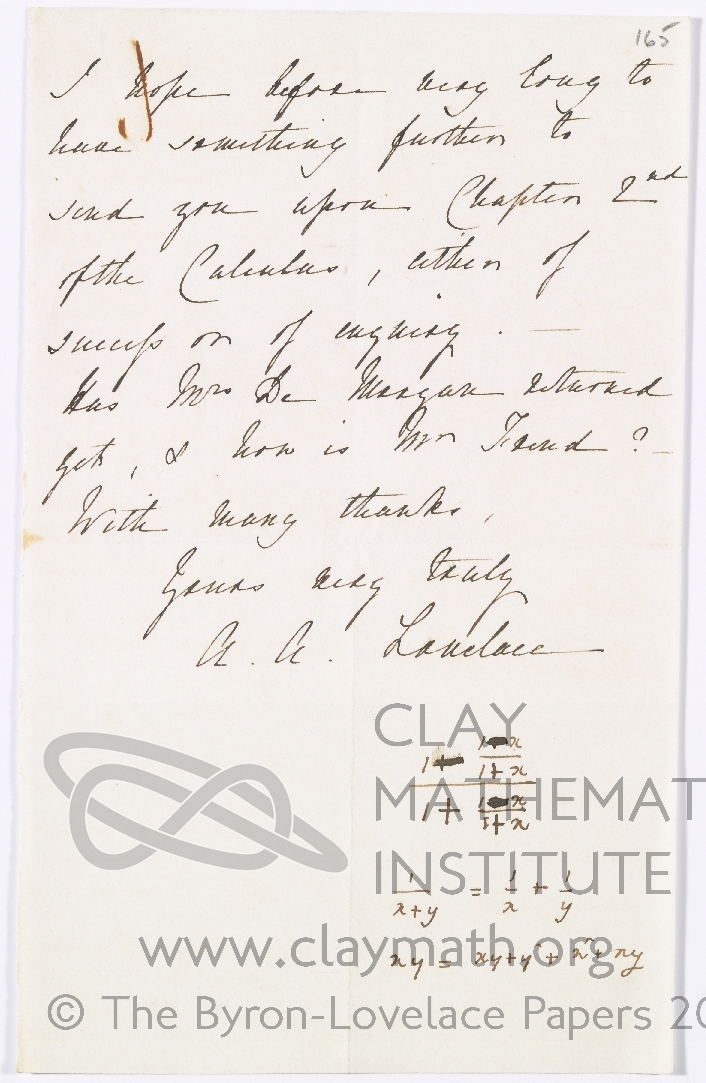 165
I hope before very long to
have something further to
send you upon Chapter 2nd
of the Calculus, either of
success or of enquiry. —
Has Mrs De Morgan returned
yet, & how is Mr Frend? —
With many thanks,
Yours very truly
A. A. Lovelace
CLAY
MATHEMAT
INSTITUTE
1 - (1-x)/(1+x)
1 + (1-x)/(1+x)
1/(x+y) = 1/x + 1/y
xy = xy + y² + x² + xy
www.claymath.org
© The Byron-Lovelace Papers 20